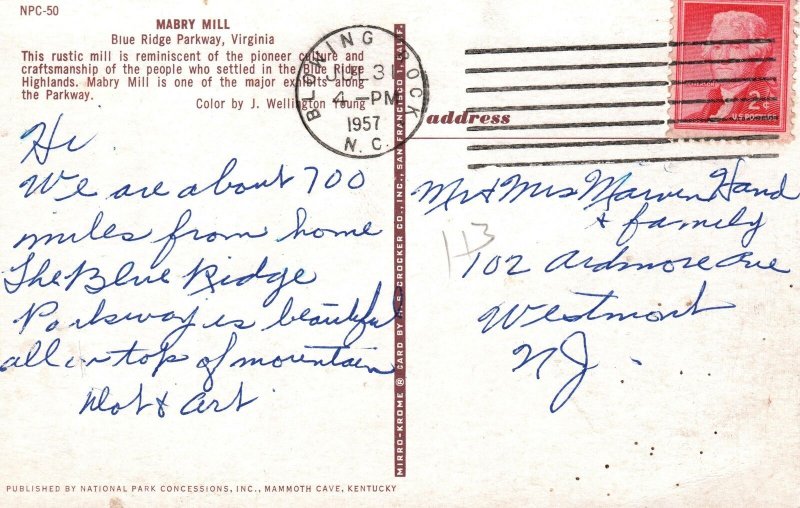 NPC-50
MABRY MILL
Blue Ridge Parkway, Virginia
This rustic mill is reminiscent of the pioneer culture and
craftsmanship of the people who settled in the Blue Ridge
Highlands. Mabry Mill is one of the major exhibits along
the Parkway.
Color by J. Wellington Young
BLOWING ROCK
JUL 31
4 - PM
1957
N. C.
Hi
We are about 700
miles from home
The Blue Ridge
Parkway is beautiful
all on top of mountain
Dot & Art
MIRRO-KROME ® CARD BY H. S. CROCKER CO., INC., SAN FRANCISCO 1, CALIF.
address
2¢
U.S. POSTAGE
Mr & Mrs Marvin Hand
& family
102 Ardmore Ave
Westmont
NJ.
PUBLISHED BY NATIONAL PARK CONCESSIONS, INC., MAMMOTH CAVE, KENTUCKY